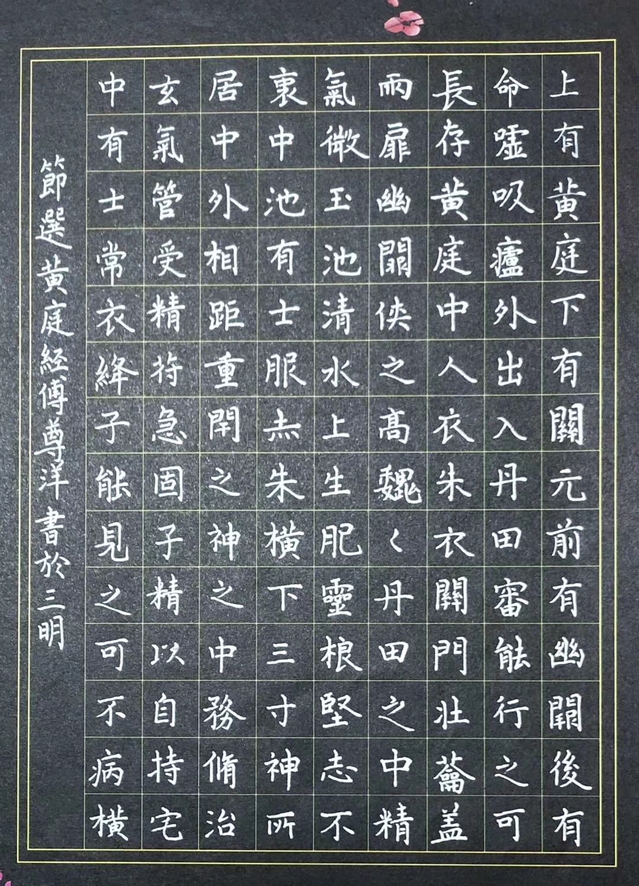 上有黃庭下有關元前有幽闕後有
命噓吸廬外出入丹田審能行之可
長存黃庭中人衣朱衣關門壯蘥盖
兩扉幽闕俠之高魏〻丹田之中精
氣微玉池清水上生肥靈根堅志不
衷中池有士服赤朱橫下三寸神所
居中外相距重閇之神之中務脩治
玄氣管受精符急固子精以自持宅
中有士常衣絳子能見之可不病橫
節選黃庭經傅尊洋書於三明